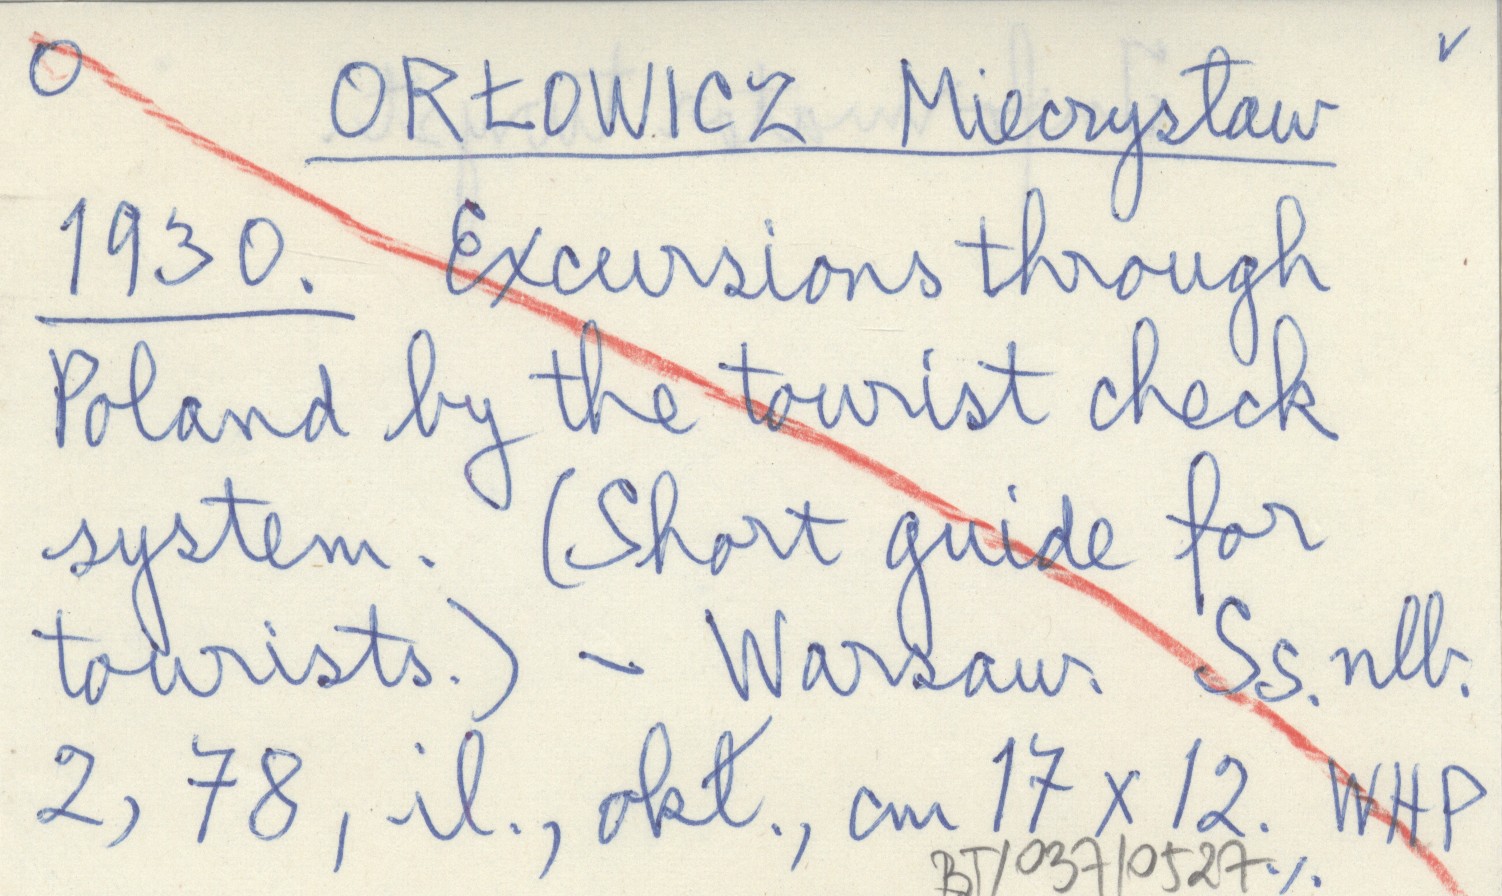 O ORŁOWICZ Mieczysław ✓
1930. Excursions through
Poland by the tourist check
system. (Short guide for
tourists.) – Warsaw. Ss. nlb.
2, 78, il., okł., cm 17 x 12. WHP
BT/037/0527 ./.